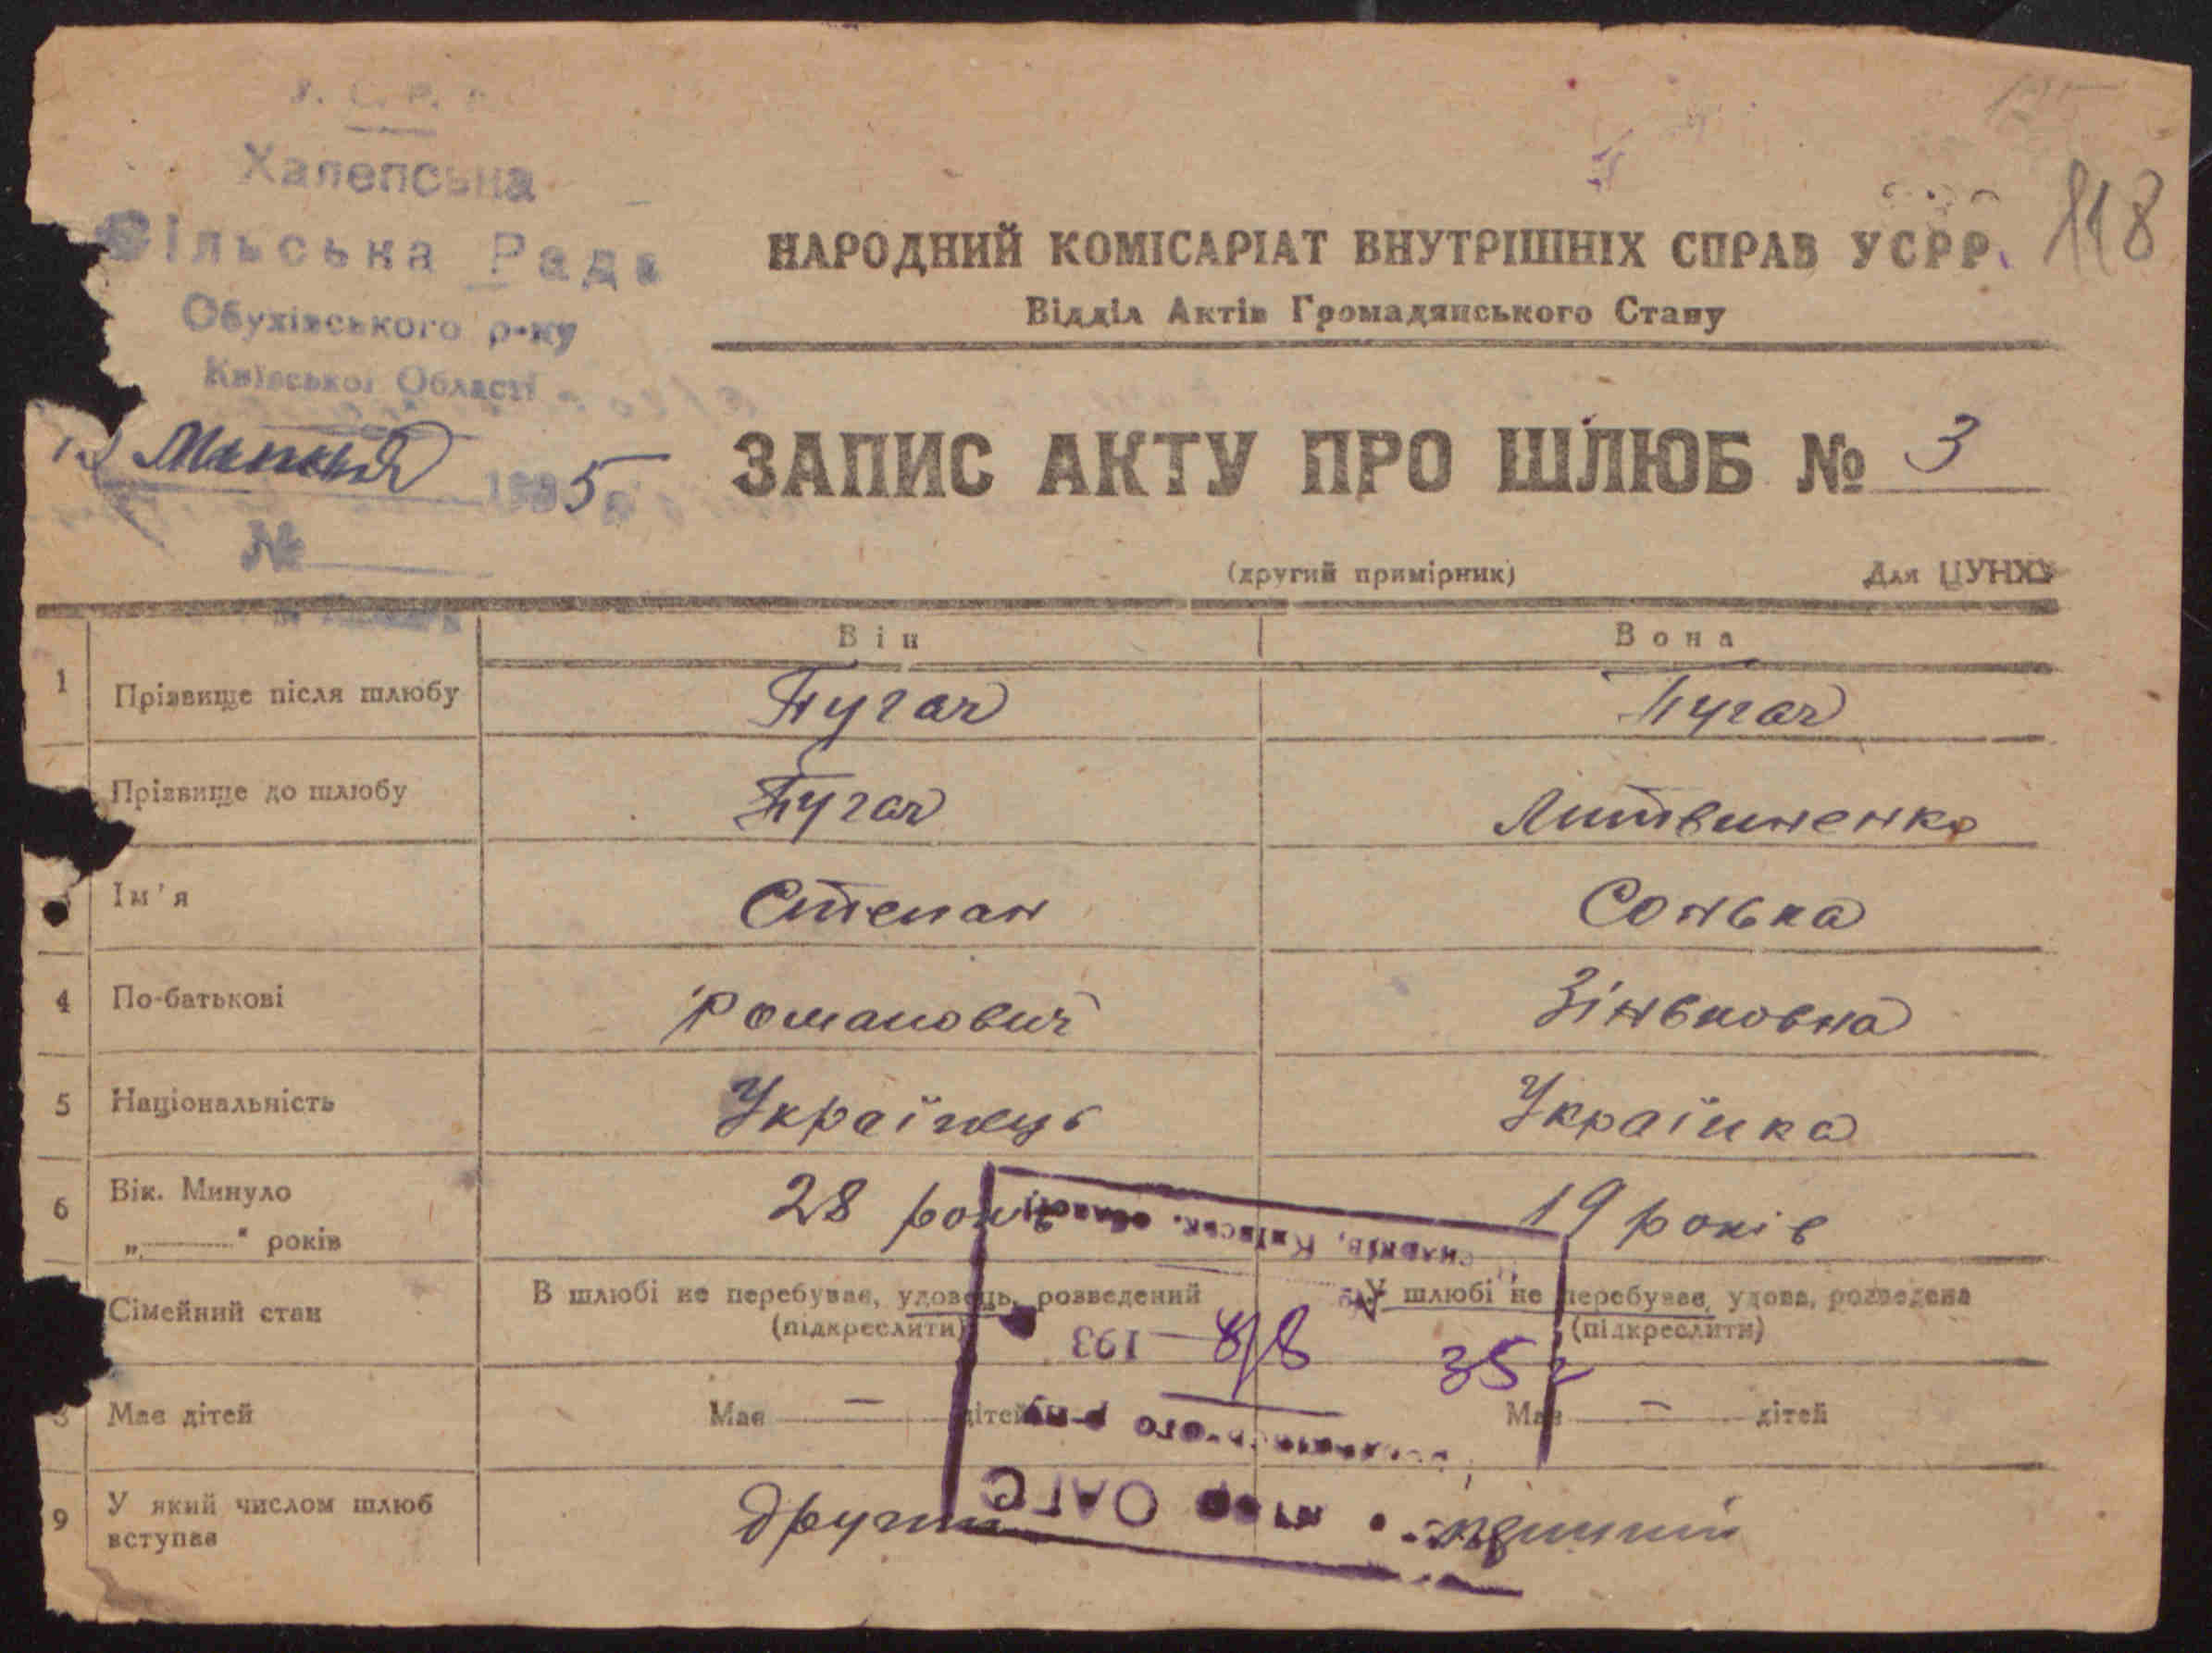 У. С. Р. Р.
Халепська
Сільська Рада
Обухівського р-ку
Київської Області
1935
№
118
НАРОДНИЙ КОМІСАРІАТ ВНУТРІШНІХ СПРАВ УСРР.
Відділ Актів Громадянського Стану
ЗАПИС АКТУ ПРО ШЛЮБ № 3
(другий примірник) Для ЦУНХУ
Він Вона
1 Прізвище після шлюбу Пугач Пугач
Прізвище до шлюбу Пугач Литвиненко
Ім'я Степан Сонька
4 По-батькові Романович Зіньковна
5 Національність Українець Українка
6 Вік. Минуло 28 років 19 років
„ “ років
Сімейний стан В шлюбі не перебував, удовець, розведений У шлюбі не перебуває, удова, розведена
(підкреслити) (підкреслити)
Має дітей Має — дітей Має — дітей
9 У який числом шлюб другий перший
вступає
ОАГС
р-ну
193 8/8 35 г
Київськ. області